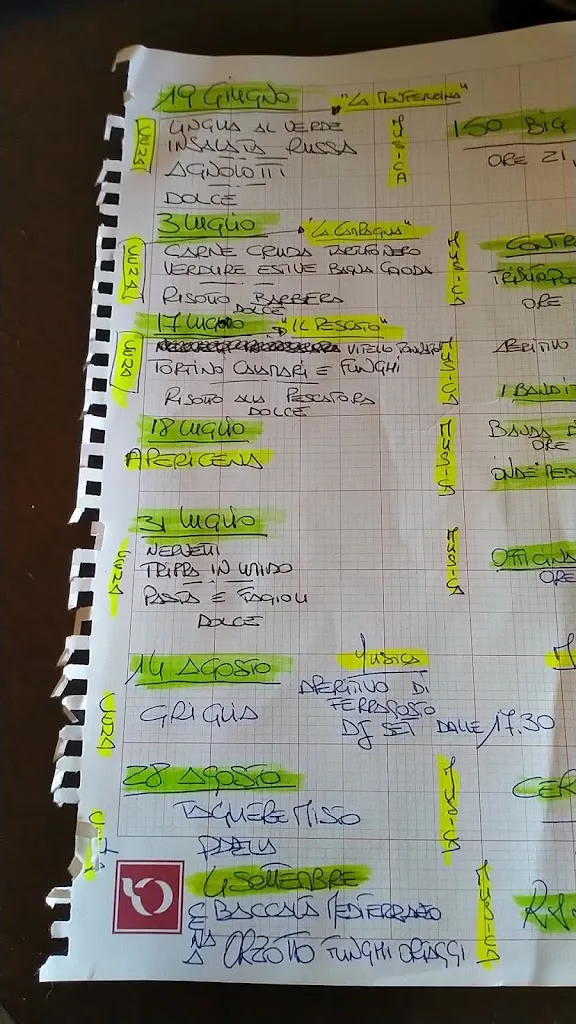 19 GIUGNO "LA MONFERRINA"
CENA
LINGUA AL VERDE
INSALATA RUSSA
AGNOLOTTI
DOLCE
MUSICA
150 BIG
ORE 21,
3 LUGLIO "LA CAMPAGNA"
CENA
CARNE CRUDA TARTUFO NERO
VERDURE ESTIVE BAGNA CAODA
RISOTTO BARBERA
DOLCE
MUSICA
CONTR
ORE
17 LUGLIO "IL PESCATO"
CENA
VITELLO TONNATO
TORTINO CALAMARI E FUNGHI
RISOTTO ALLA PESCATORA
DOLCE
MUSICA
APERITIVO
I BANDIT
18 LUGLIO
APERICENA
MUSICA
BANDA D
ORE
INDEPEN
31 LUGLIO
CENA
NERVETTI
TRIPPA IN UMIDO
PASTA E FAGIOLI
DOLCE
MUSICA
OFFICINA
ORE
14 AGOSTO
CENA
GRIGLIA
MUSICA
APERITIVO DI
FERRAGOSTO
DJ SET DALLE 17.30
M
28 AGOSTO
CENA
TAGLIERE MISTO
PAELLA
MUSICA
CER
4 SETTEMBRE
CENA
BACCALÀ MEDITERRANEO
ORZOTTO FUNGHI
MUSICA